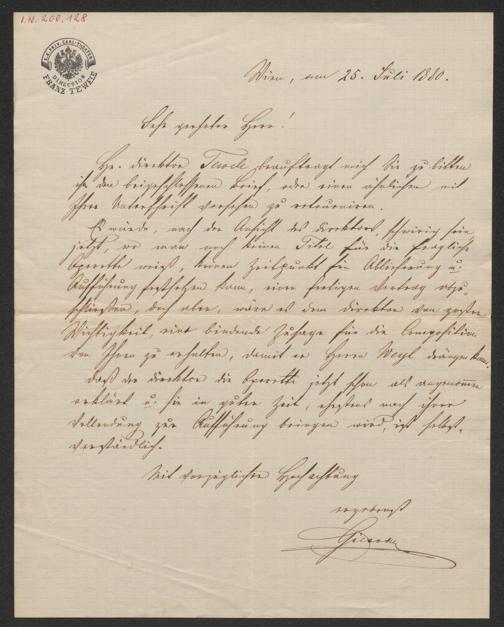 I.N. 200.128
K.K. PRIV. CARL-THEATER
DIRECTION
FRANZ TEWELE
Wien, am 25. Juli 1880.
Sehr geehrter Herr!
Hr. Direktor Tewele beauftragt mich Sie zu bitten
ihm den beigeschlossenen Brief, oder einen ähnlichen mit
Ihrer Unterschrift versehen zu retourniren.
Es würde, nach der Ansicht des Direktors, schwierig sein
jetzt, wo man noch keinen Titel für die fragliche
Operette weiß, keinen Zeitpunkt für Ablieferung u.
Aufführung festsetzen kann, einen fertigen Vertrag abzu-
schließen, doch aber, wäre es dem Direktor von großer
Wichtigkeit, eine bindende Zusage für die Composition
von Ihnen zu erhalten, damit er Herrn Weyl drängen kann.
Daß der Direktor die Operette jetzt schon als angenommen
erklärt u. sie in guter Zeit, ehestens nach ihrer
Vollendung zur Aufführung bringen wird, ist selbst-
verständlich.
Mit vorzüglicher Hochachtung
ergebenst